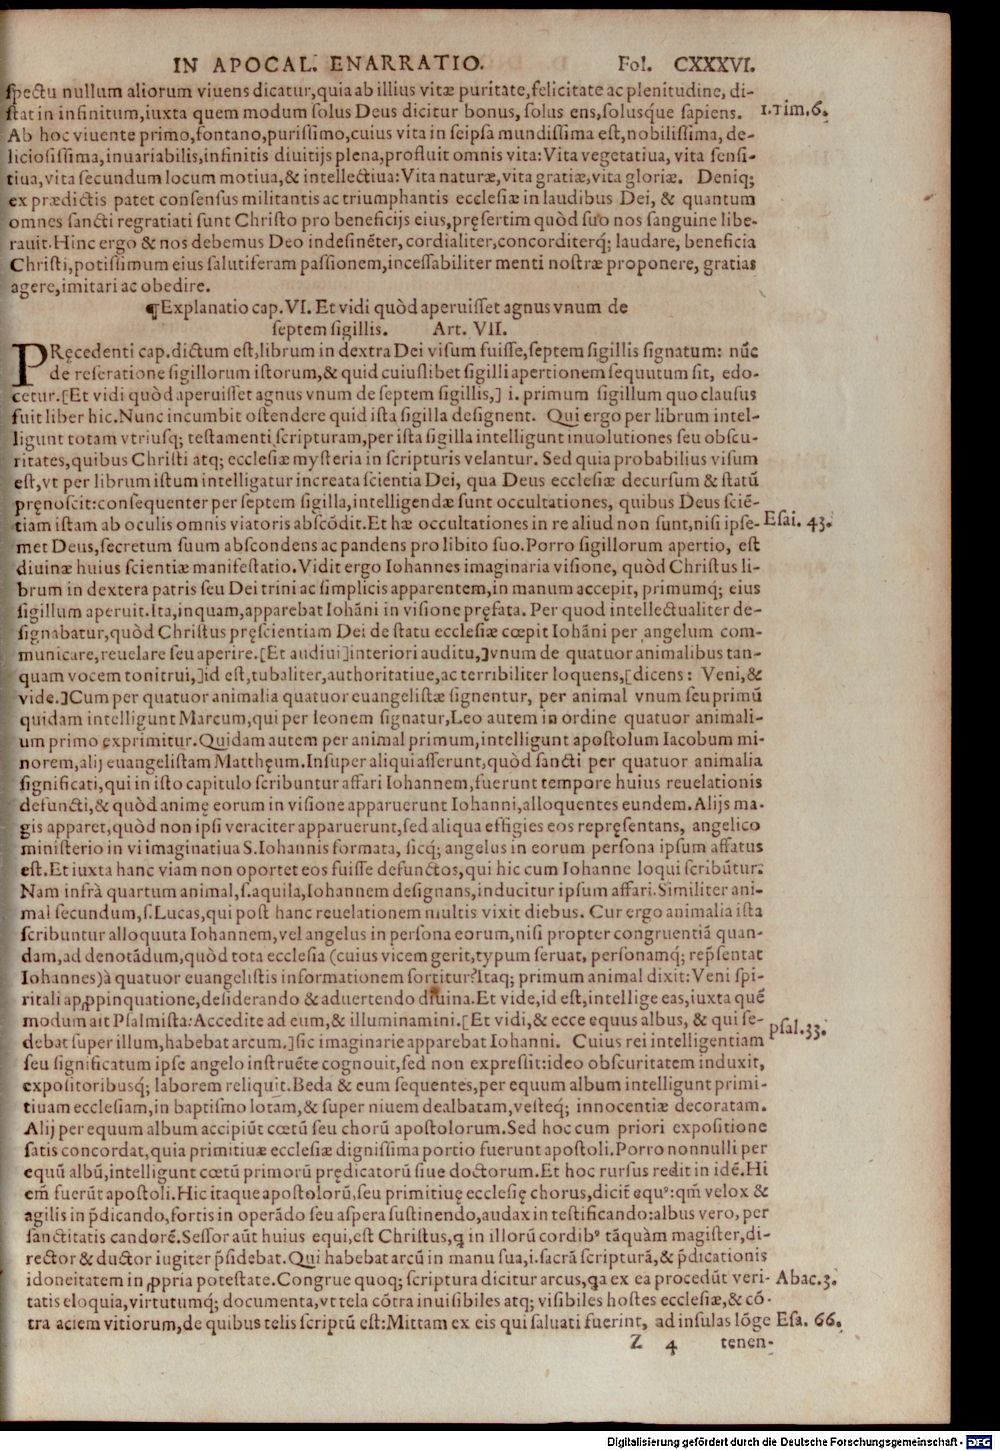 IN APOCAL. ENARRATIO. Fol. CXXXVI.
ſpectu nullum aliorum viuens dicatur,quia ab illius vitæ puritate,felicitate ac plenitudine, di-
ſtat in infinitum,iuxta quem modum ſolus Deus dicitur bonus, ſolus ens,ſolusque ſapiens. 1.Tim.6.
Ab hoc viuente primo,fontano,puriſſimo,cuius vita in ſeipſa mundiſſima eſt,nobiliſſima, de-
licioſiſſima,inuariabilis,infinitis diuitijs plena,profluit omnis vita:Vita vegetatiua, vita ſenſi-
tiua,vita ſecundum locum motiua,& intellectiua:Vita naturæ,vita gratiæ,vita gloriæ. Deniq;
ex prædictis patet conſenſus militantis ac triumphantis eccleſiæ in laudibus Dei, & quantum
omnes ſancti regratiati ſunt Chriſto pro beneficijs eius,pręſertim quòd ſuo nos ſanguine libe-
rauit.Hinc ergo & nos debemus Deo indeſinẽter, cordialiter,concorditerq́; laudare, beneficia
Chriſti,potiſſimum eius ſalutiferam paſſionem,inceſſabiliter menti noſtræ proponere, gratias
agere,imitari ac obedire.
¶Explanatio cap.VI. Et vidi quòd aperuiſſet agnus vnum de
ſeptem ſigillis. Art. VII.
PRęcedenti cap.dictum eſt,librum in dextra Dei viſum fuiſſe,ſeptem ſigillis ſignatum: nũc
de reſeratione ſigillorum iſtorum,& quid cuiuſlibet ſigilli apertionem ſequutum ſit, edo-
cetur.[Et vidi quòd aperuiſſet agnus vnum de ſeptem ſigillis,] i. primum ſigillum quo clauſus
fuit liber hic.Nunc incumbit oſtendere quid iſta ſigilla deſignent. Qui ergo per librum intel-
ligunt totam vtriuſq; teſtamenti ſcripturam,per iſta ſigilla intelligunt inuolutiones ſeu obſcu-
ritates,quibus Chriſti atq; eccleſiæ myſteria in ſcripturis velantur. Sed quia probabilius viſum
eſt,vt per librum iſtum intelligatur increata ſcientia Dei, qua Deus eccleſiæ decurſum & ſtatũ
pręnoſcit:conſequenter per ſeptem ſigilla,intelligendæ ſunt occultationes, quibus Deus ſciẽ-
tiam iſtam ab oculis omnis viatoris abſcõdit.Et hæ occultationes in re aliud non ſunt,niſi ipſe- Eſai. 43.
met Deus,ſecretum ſuum abſcondens ac pandens pro libito ſuo.Porro ſigillorum apertio, eſt
diuinæ huius ſcientiæ manifeſtatio.Vidit ergo Iohannes imaginaria viſione, quòd Chriſtus li-
brum in dextera patris ſeu Dei trini ac ſimplicis apparentem,in manum accepit, primumq́; eius
ſigillum aperuit.Ita,inquam,apparebat Iohãni in viſione pręfata. Per quod intellectualiter de-
ſignabatur,quòd Chriſtus pręſcientiam Dei de ſtatu eccleſiæ cœpit Iohãni per angelum com-
municare,reuelare ſeu aperire.[Et audiui]interiori auditu,]vnum de quatuor animalibus tan-
quam vocem tonitrui,]id eſt,tubaliter,authoritatiue,ac terribiliter loquens,[dicens: Veni,&
vide.]Cum per quatuor animalia quatuor euangeliſtæ ſignentur, per animal vnum ſeu primũ
quidam intelligunt Marcum,qui per leonem ſignatur,Leo autem in ordine quatuor animali-
um primo exprimitur.Quidam autem per animal primum,intelligunt apoſtolum Iacobum mi-
norem,alij euangeliſtam Matthęum.Inſuper aliqui aſſerunt,quòd ſancti per quatuor animalia
ſignificati,qui in iſto capitulo ſcribuntur affari Iohannem,fuerunt tempore huius reuelationis
defuncti,& quòd animę eorum in viſione apparuerunt Iohanni,alloquentes eundem.Alijs ma-
gis apparet,quòd non ipſi veraciter apparuerunt,ſed aliqua effigies eos repręſentans, angelico
miniſterio in vi imaginatiua S.Iohannis formata, ſicq́; angelus in eorum perſona ipſum affatus
eſt.Et iuxta hanc viam non oportet eos fuiſſe defunctos,qui hic cum Iohanne loqui ſcribũtur.
Nam infrà quartum animal,ſ.aquila,Iohannem deſignans,inducitur ipſum affari.Similiter ani-
mal ſecundum,ſ.Lucas,qui poſt hanc reuelationem multis vixit diebus. Cur ergo animalia iſta
ſcribuntur alloquuta Iohannem,vel angelus in perſona eorum,niſi propter congruentiã quan-
dam,ad denotãdum,quòd tota eccleſia (cuius vicem gerit,typum ſeruat, perſonamq́; rep̃ſentat
Iohannes)à quatuor euangeliſtis informationem ſortitur?Itaq; primum animal dixit:Veni ſpi-
ritali apꝓpinquatione,deſiderando & aduertendo diuina.Et vide,id eſt,intellige eas,iuxta quẽ
modum ait Pſalmiſta:Accedite ad eum,& illuminamini.[Et vidi,& ecce equus albus, & qui ſe- Pſal.33.
debat ſuper illum,habebat arcum.]ſic imaginarie apparebat Iohanni. Cuius rei intelligentiam
ſeu ſignificatum ipſe angelo inſtruẽte cognouit,ſed non expreſſit:ideo obſcuritatem induxit,
expoſitoribusq́; laborem reliquit.Beda & eum ſequentes,per equum album intelligunt primi-
tiuam eccleſiam,in baptiſmo lotam,& ſuper niuem dealbatam,veſteq́; innocentiæ decoratam.
Alij per equum album accipiũt cœtũ ſeu chorũ apoſtolorum.Sed hoc cum priori expoſitione
ſatis concordat,quia primitiuæ eccleſiæ digniſſima portio fuerunt apoſtoli.Porro nonnulli per
equũ albũ,intelligunt cœtũ primorũ prędicatorũ ſiue doctorum.Et hoc rurſus redit in idẽ.Hi
em̃ fuerũt apoſtoli.Hic itaque apoſtolorũ,ſeu primitiuę eccleſię chorus,dicit̃ equꝰ:qm̃ velox &
agilis in p̃dicando,fortis in operãdo ſeu aſpera ſuſtinendo,audax in teſtificando:albus vero, per
ſanctitatis candorẽ.Seſſor aũt huius equi,eſt Chriſtus,q̃ in illorũ cordibꝰ tãquàm magiſter,di-
rector & ductor iugiter p̃ſidebat.Qui habebat arcũ in manu ſua,i.ſacrã ſcripturã,& p̃dicationis
idoneitatem in ꝓpria poteſtate.Congrue quoq; ſcriptura dicitur arcus,q̃a ex ea procedũt veri- Abac.3.
tatis eloquia,virtutumq́; documenta,vt tela cõtra inuiſibiles atq; viſibiles hoſtes eccleſiæ,& cõ-
tra aciem vitiorum,de quibus telis ſcriptũ eſt:Mittam ex eis qui ſaluati fuerint, ad inſulas lõge Eſa. 66.
Z 4 tenen-
Digitalisierung gefördert durch die Deutsche Forschungsgemeinschaft - DFG